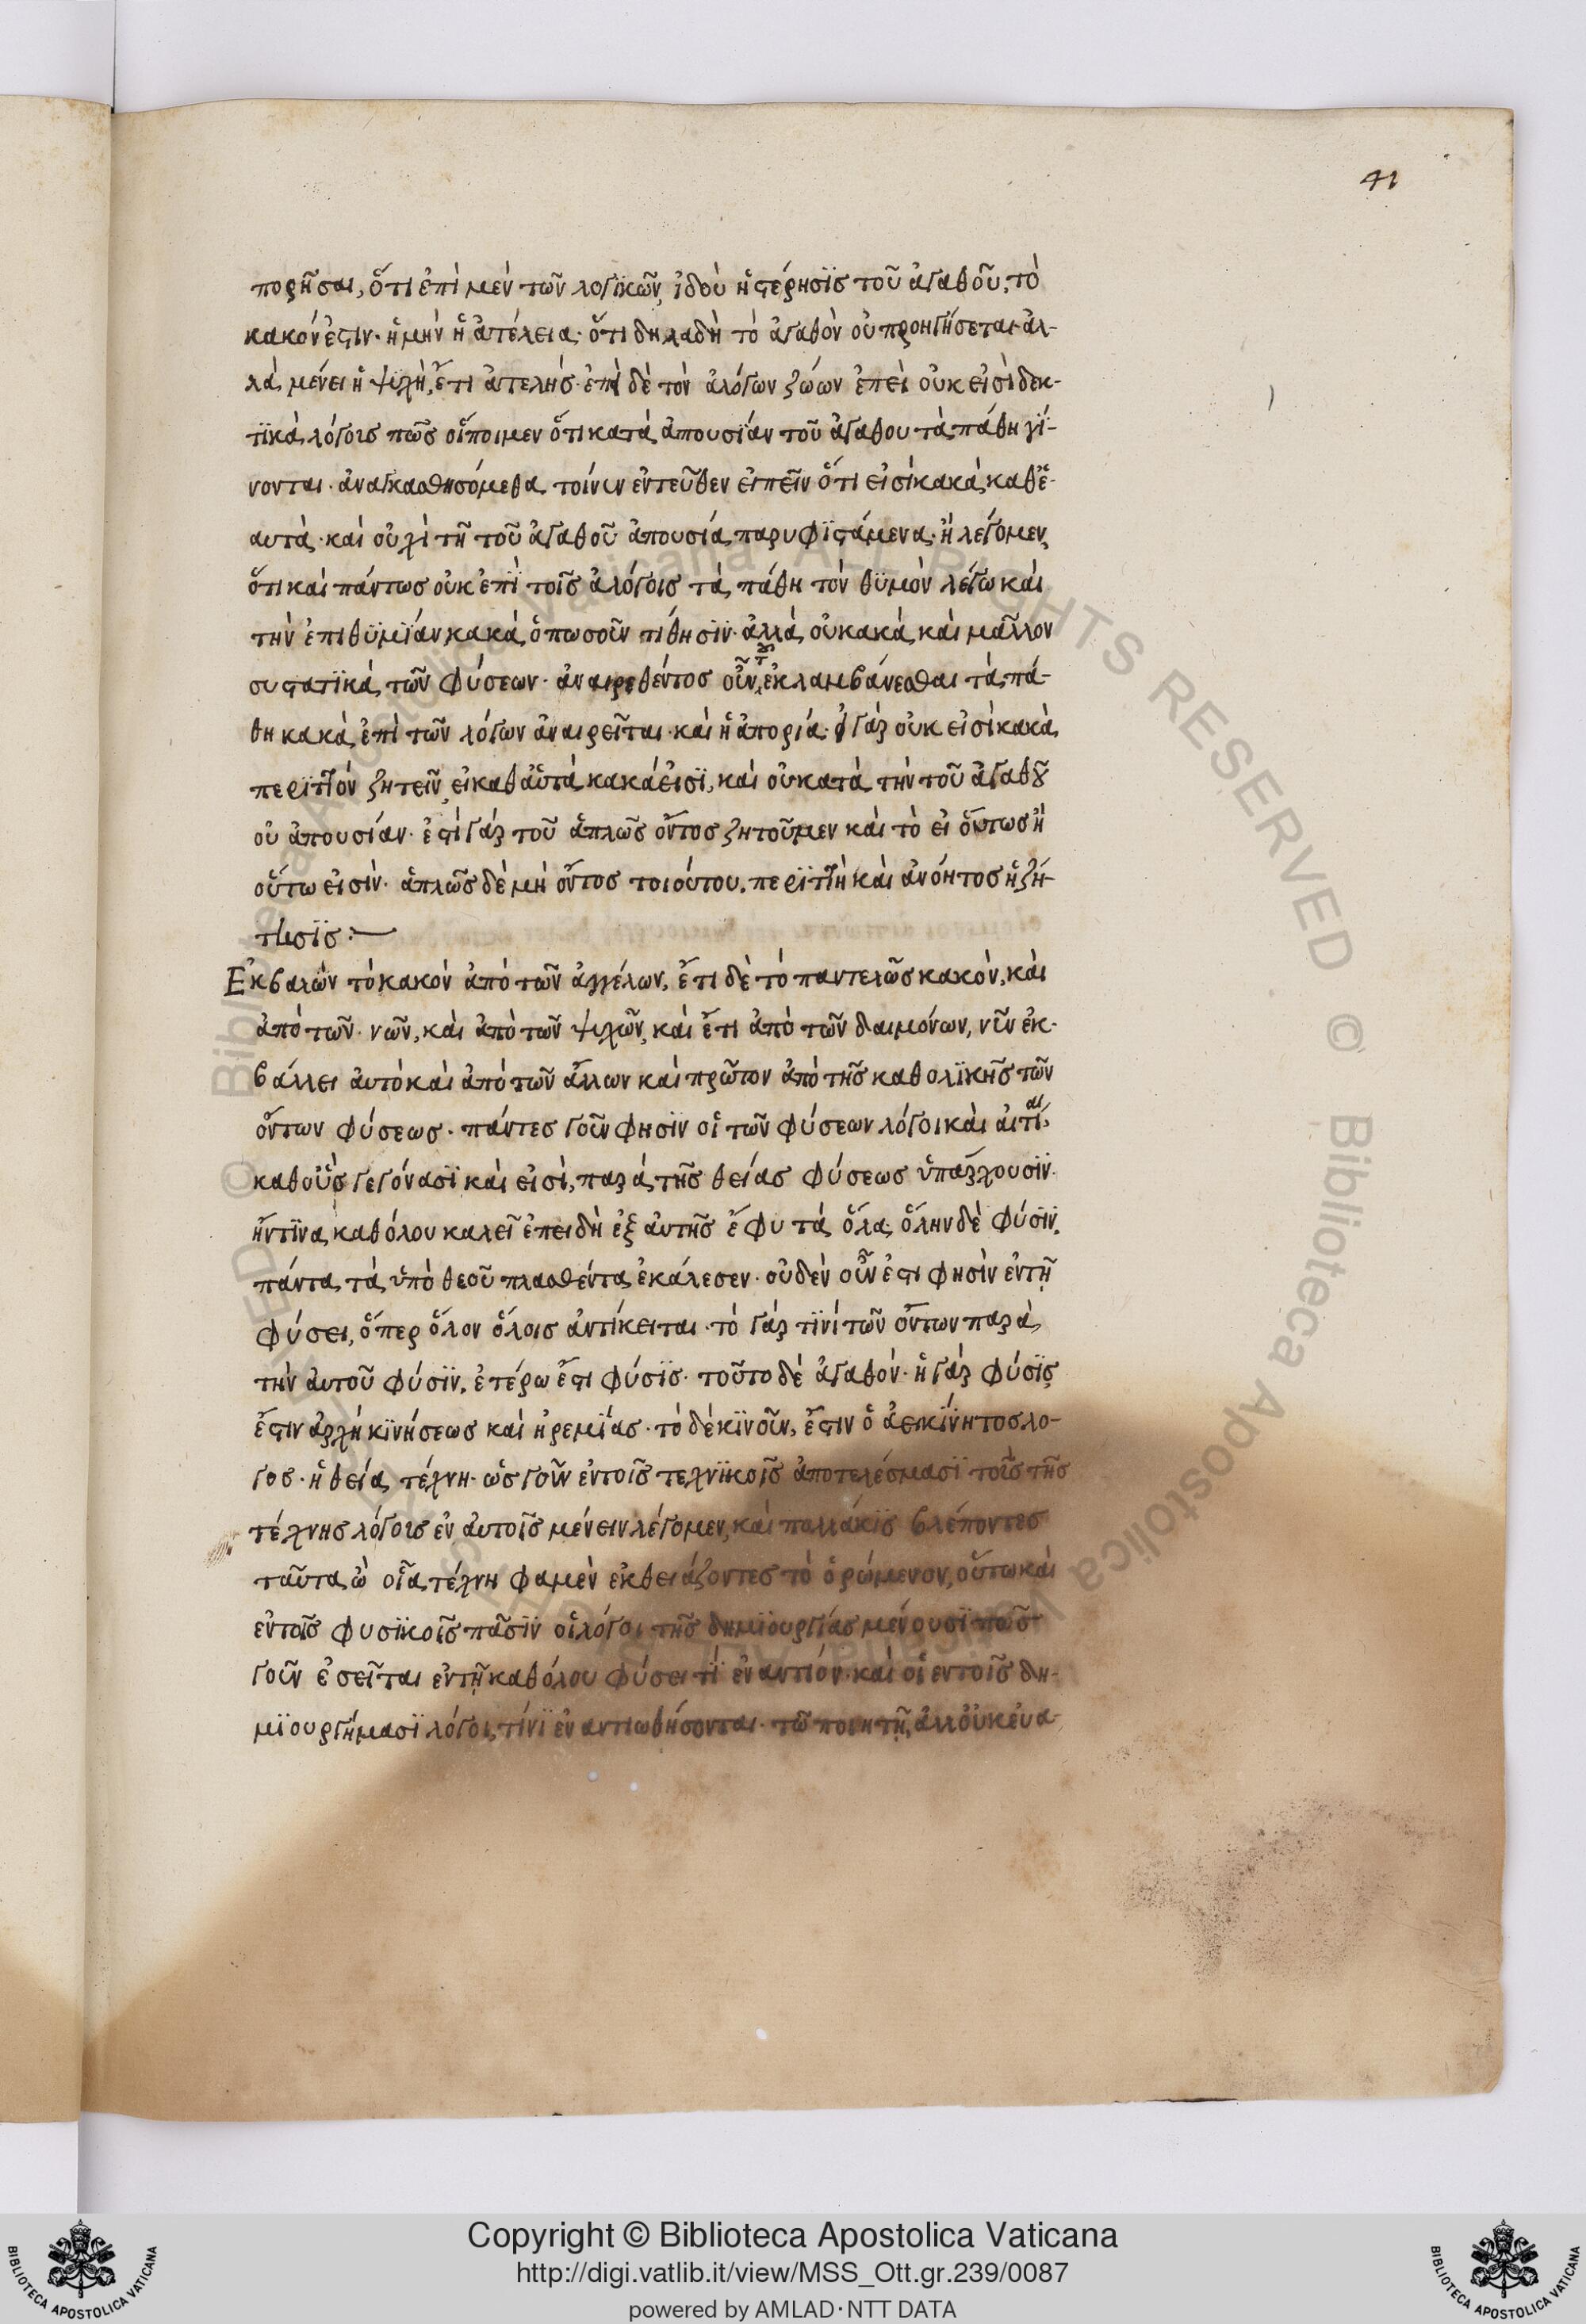 41
πορῆσαι, ὅτι ἐπὶ μὲν τῶν λογϊκῶν, ἰδοὺ ἡ στέρησϊς τοῦ ἀγαθοῦ, τὸ
κακόν ἐστιν· ἢ μὴν ἡ ἀτέλεια· ὅτι δηλαδὴ τὸ ἀγαθὸν οὐ προηγήσεται· ἀλ-
λὰ μένει ἡ ψυχὴ, ἔτι ἀτελὴς· ἐπὶ δὲ τὸν ἀλόγων ζώων ἐπεὶ οὐκ εἰσὶ δεκ-
τϊκὰ λόγοις πῶς οἴποιμεν ὅτι κατὰ ἀπουσίαν τοῦ ἀγαθου τὰ πάθη γί-
νονται· ἀναγκασθησόμεθα τοίνυν ἐντεῦθεν εἰπεῖν ὅτι εἰσὶ κακὰ καθἑ-
αυτὰ· καὶ οὐχὶ τῆ τοῦ ἀγαθοῦ ἀπουσία παρυφϊστάμενα· ἢ λέγομεν
ὅτι καὶ πάντως οὐκ ἐπῒ τοῖς ἀλόγοις τὰ πάθη τὸν θϋμὸν λέγω καὶ
τὴν ἐπιθϋμΐαν κακὰ ὁπωσοῦν τίθησϊν· ἀλλὰ οὐ κακὰ καὶ μᾶλλον
συστατϊκὰ τῶν φύσεων· ἀναιρεθέντος οὖν, ἐκλαμβάνεσθαι τὰ πά-
θη κακὰ ἐπὶ τῶν λόγων ἀναιρεῖται· καὶ ἡ ἀπορία· γὰρ οὐκ εἰσὶ κακὰ
περϊττὸν ζητεῖν, εἰ καθ αὑτὰ κακά εἰσϊ, καὶ οὐ κατὰ τὴν τοῦ ἀγαθοῦ
οὐ ἀπουσίαν· ἐπὶ γὰρ τοῦ ἁπλῶς ὄντος ζητοῦμεν καὶ τὸ εἰ ὄντως ἢ
οὕτω εἰσὶν· ἁπλῶς δὲ μὴ ὄντος τοιούτου, περϊττὴ καὶ ἀνόητος ἡ ζή-
τησϊς :—
Ἐκβαλὼν τὸ κακὸν ἀπὸ τῶν ἀγγέλων, ἔτι δὲ τὸ παντελῶς κακὸν, καὶ
ἀπὸ τῶν· νῶν, καὶ ἀπὸ τῶν ψυχῶν, καὶ ἔτι ἀπὸ τῶν δαιμόνων, νῦν ἐκ-
βάλλει ἀυτὸ καὶ ἀπὸ τῶν ἄλλων καὶ πρῶτον ἀπὸ τῆς καθολϊκῆς τῶν
ὄντων φύσεως· πάντες γοῦν φησϊν οἱ τῶν φύσεων λόγοι καὶ ἀιτίαι
καθοὓς γεγόνασϊ καὶ εἰσὶ, παρὰ τῆς θείας φύσεως ὑπάρχουσϊν·
ἥντϊνα καθόλου καλεῖ ἐπειδὴ ἐξ ἀυτῆς ἔφυ τὰ ὅλα· ὅλην δὲ φύσϊν,
πάντα τὰ ὑπὸ θεοῦ πλασθέντα ἐκάλεσεν· οὐδὲν οὖν ἐστι φησὶν ἐν τῇ
φύσει, ὅπερ ὅλον ὅλοις ἀντίκειται· τὸ γὰρ τϊνὶ τῶν ὄντων παρὰ
τὴν ἀυτοῦ φύσϊν, ἑτέρω ἔστι φύσϊς· τοῦτο δὲ ἀγαθὸν· ἡ γὰρ φύσϊς
ἔστιν ἀρχὴ κϊνήσεως καὶ ἠρεμΐας· τὸ δὲ κϊνοῦν, ἔστιν ὁ ἀεικΐνητος λο-
γος· ἡ θεία τέχνη· ὡς γοῦν ἐν τοῖς τεχνϊκοῖς ἀποτελέσμασϊ τοῖς τῆς
τέχνης λόγοις ἐν ἀυτοῖς μένειν λέγομεν, καὶ πολλάκϊς βλέποντες
ταῦτα, ὢ οἵα τέχνη φαμὲν ἐκθειάζοντες τὸ ὁρώμενον, οὕτω καὶ
ἐν τοῖς φυσϊκοῖς πᾶσϊν οἱ λόγοι τῆς δημϊουργίας μένουσϊ πῶς
γοῦν ἐσεῖται ἐν τῇ καθόλου φύσει τΐ ἐναντίον· καὶ οἱ ἐν τοῖς δη-
μϊουργήμασϊ λόγοι, τίνϊ ἐναντιωθήσονται· τῶ ποιητῇ, ἀλλ οὐκ ἐνα-
Copyright © Biblioteca Apostolica Vaticana
http://digi.vatlib.it/view/MSS_Ott.gr.239/0087
powered by AMLAD·NTT DATA